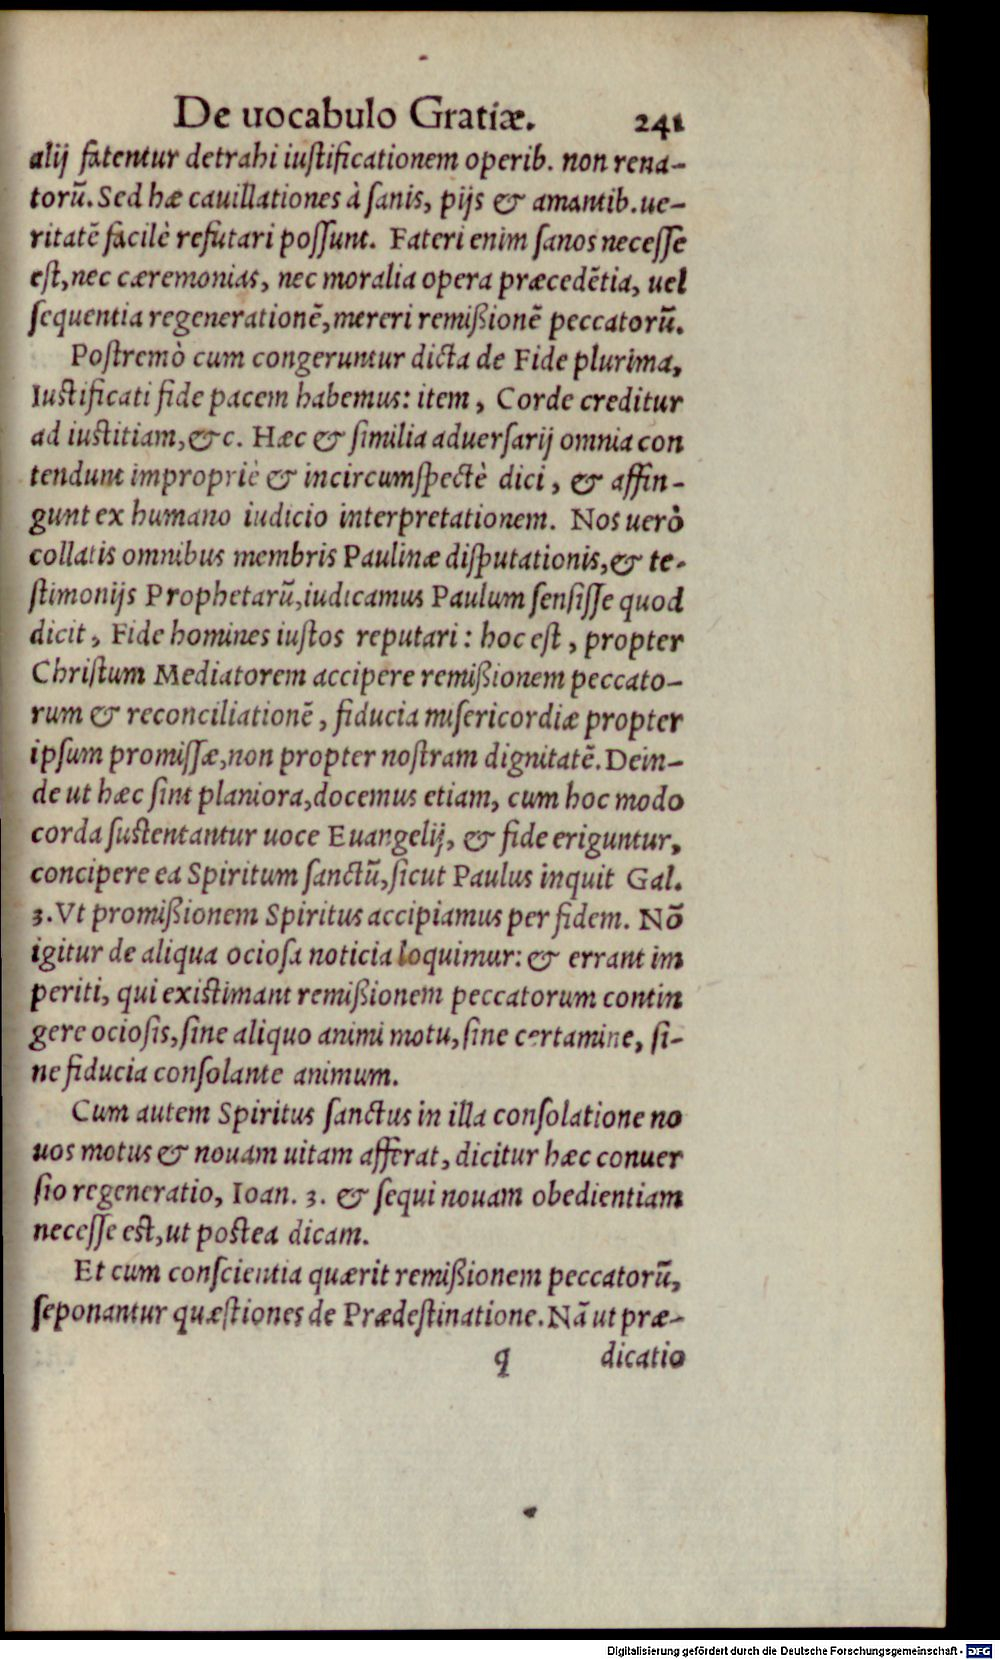 De uocabulo Gratiæ. 241
alij fatentur detrahi iustificationem operib. non rena-
torũ. Sed hæ cauillationes à sanis, pijs & amantib. ue-
ritatẽ facilè refutari possunt. Fateri enim sanos necesse
est, nec cæremonias, nec moralia opera præcedẽtia, uel
sequentia regenerationẽ, mereri remißionẽ peccatorũ.
Postremò cum congeruntur dicta de Fide plurima,
Iustificati fide pacem habemus: item, Corde creditur
ad iustitiam, &c. Hæc & similia aduersarij omnia con
tendunt impropriè & incircumspectè dici, & affin-
gunt ex humano iudicio interpretationem. Nos uerò
collatis omnibus membris Paulinæ disputationis, & te-
stimonijs Prophetarũ, iudicamus Paulum sensisse quod
dicit, Fide homines iustos reputari: hoc est, propter
Christum Mediatorem accipere remißionem peccato-
rum & reconciliationẽ, fiducia misericordiæ propter
ipsum promissæ, non propter nostram dignitatẽ. Dein-
de ut hæc sint planiora, docemus etiam, cum hoc modo
corda sustentantur uoce Euangelij, & fide eriguntur,
concipere ea Spiritum sanctũ, sicut Paulus inquit Gal.
3. Vt promißionem Spiritus accipiamus per fidem. Nõ
igitur de aliqua ociosa noticia loquimur: & errant im
periti, qui existimant remißionem peccatorum contin
gere ociosis, sine aliquo animi motu, sine certamine, si-
ne fiducia consolante animum.
Cum autem Spiritus sanctus in illa consolatione no
uos motus & nouam uitam afferat, dicitur hæc conuer
sio regeneratio, Ioan. 3. & sequi nouam obedientiam
necesse est, ut postea dicam.
Et cum conscientia quærit remißionem peccatorũ,
seponantur quæstiones de Prædestinatione. Nã ut præ-
q dicatio
Digitalisierung gefördert durch die Deutsche Forschungsgemeinschaft - DFG